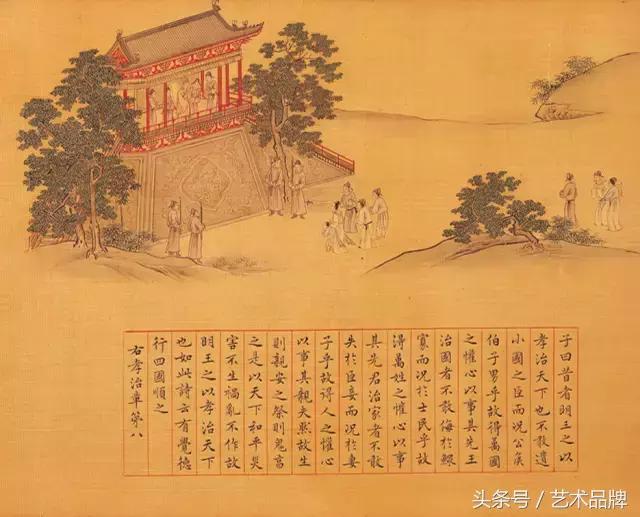 子曰昔者明王之以
孝治天下也不敢遺
小國之臣而况公侯
伯子男乎故得萬國
之懽心以事其先王
治國者不敢侮於鰥
寡而况於士民乎故
得萬姓之懽心以事
其先君治家者不敢
失於臣妾而况於妻
子乎故得人之懽心
以事其親夫然故生
則親安之祭則鬼享
之是以天下和平災
害不生禍亂不作故
明王之以孝治天下
也如此詩云有覺德
行四國順之
右孝治章第八
头条号 / 艺术品牌